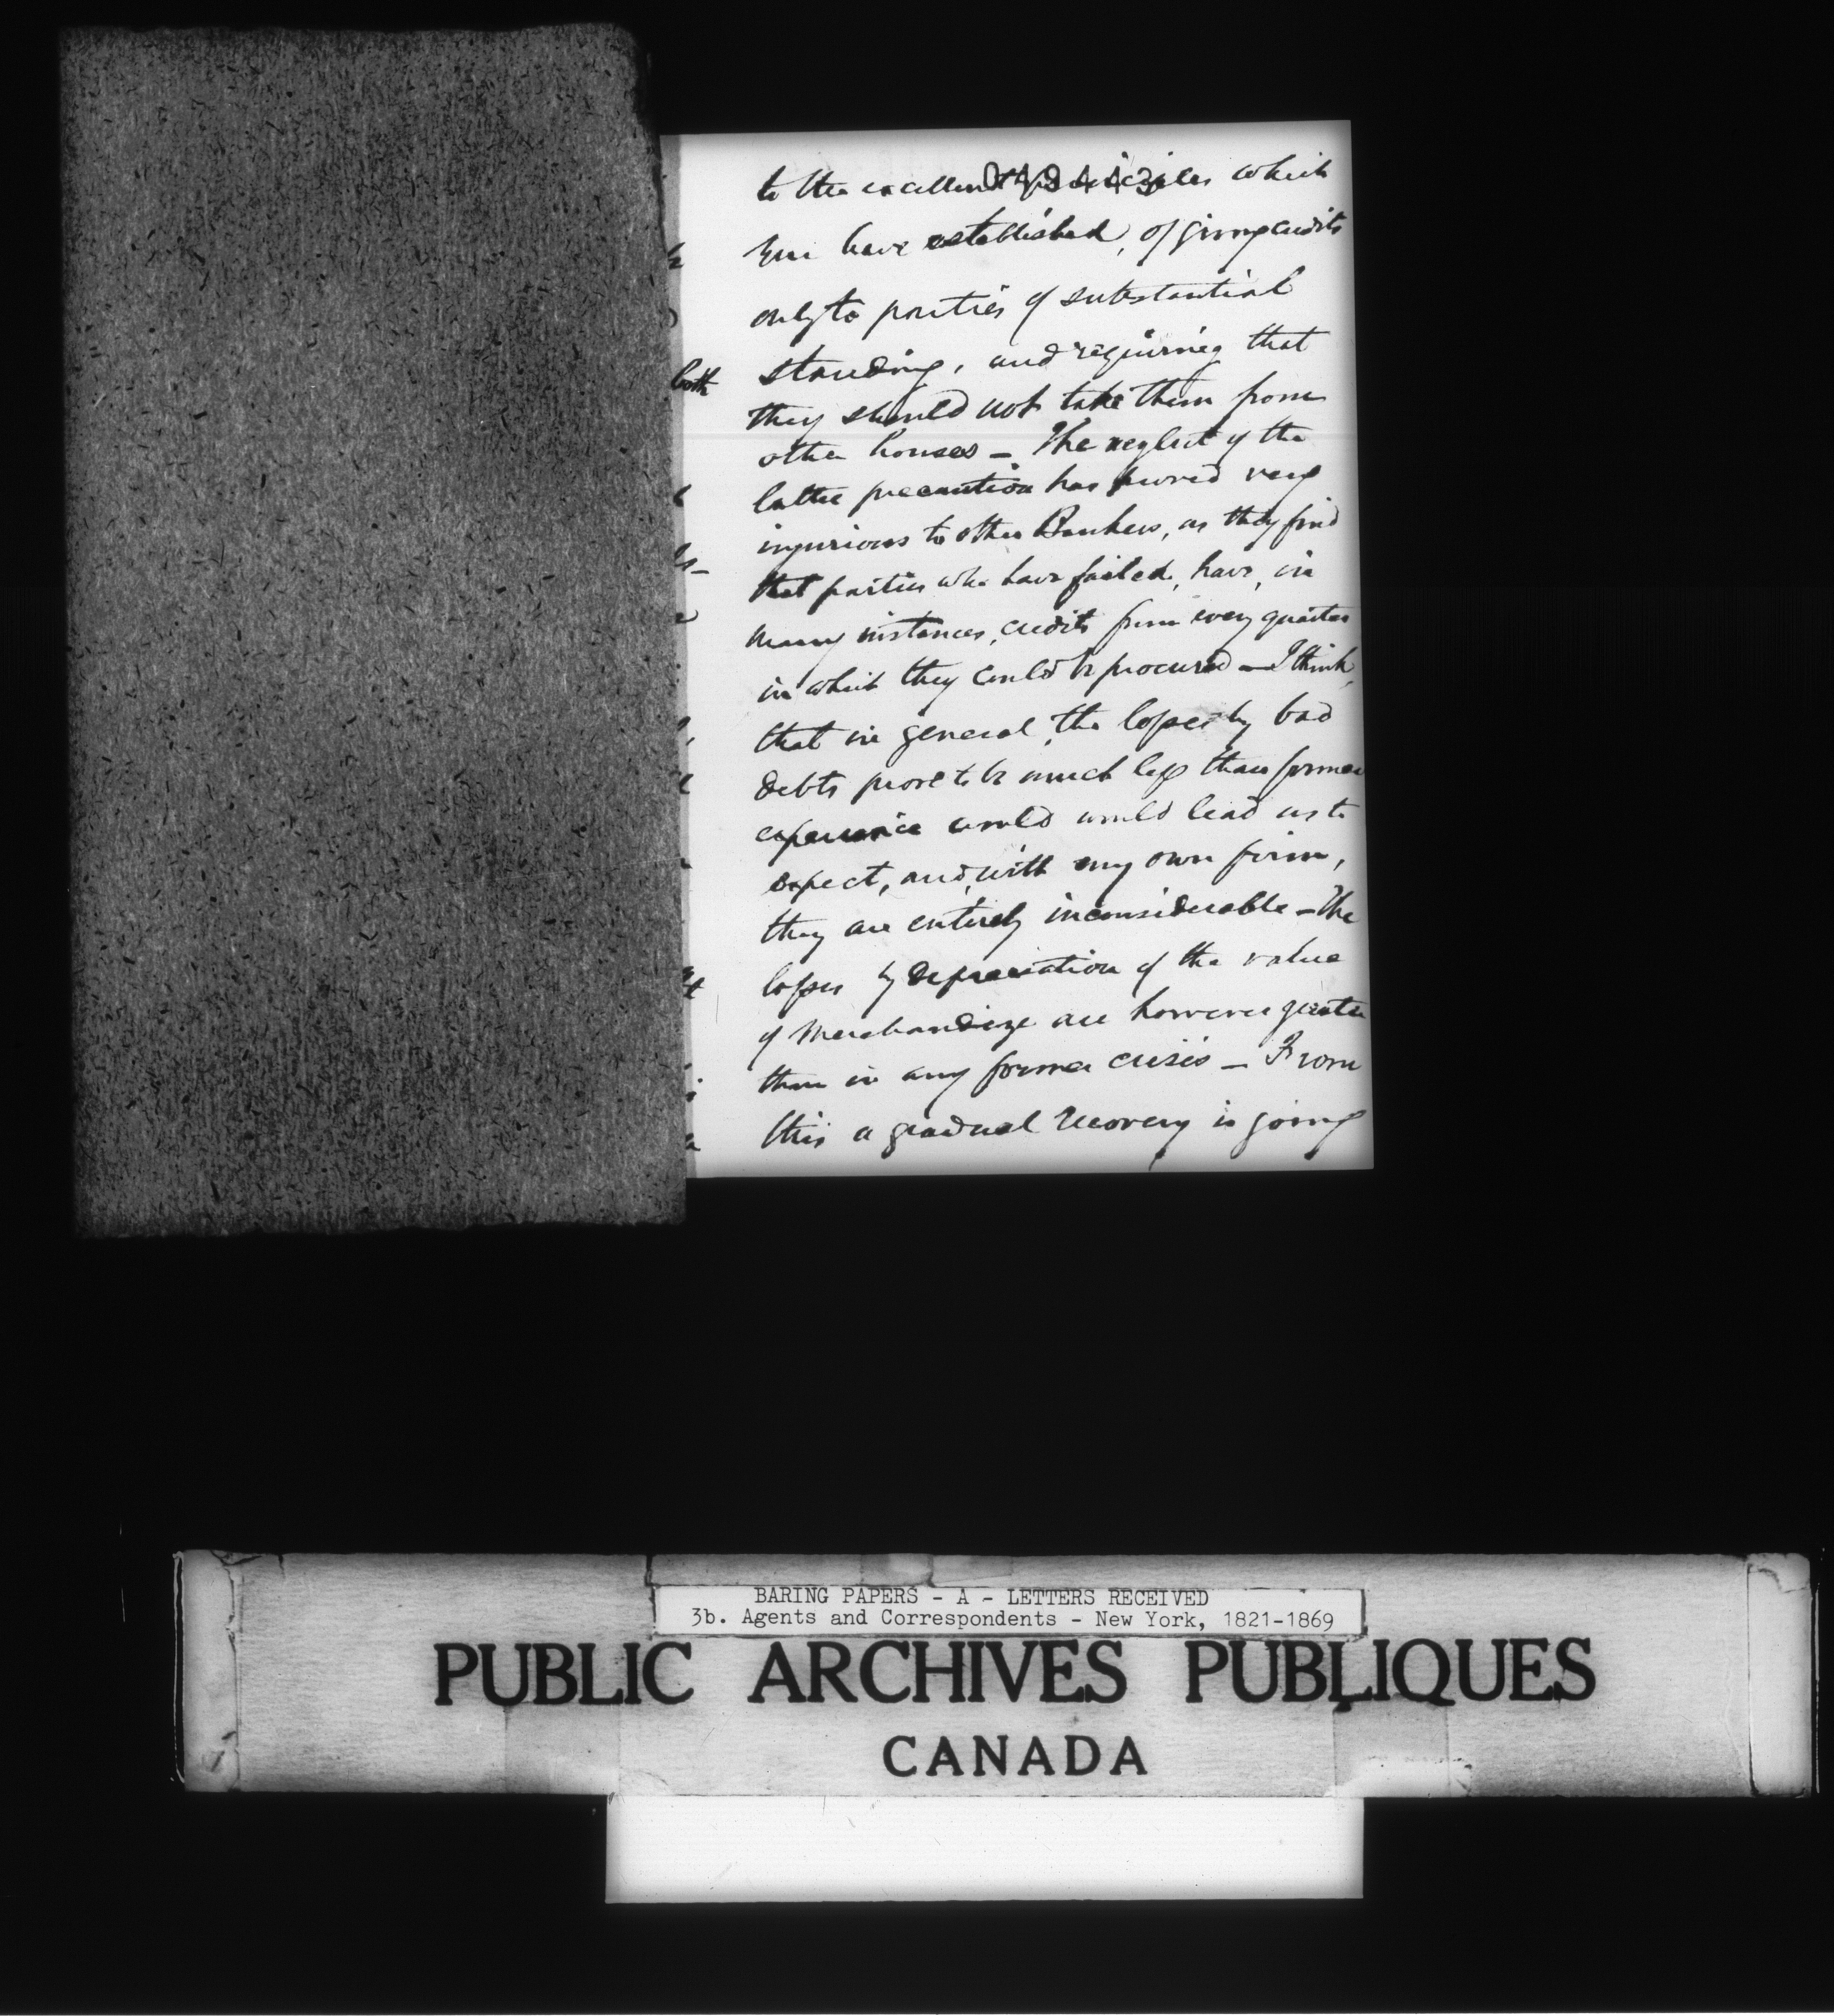 049443
to the excellent principles which
you have established, of giving credits
only to parties of substantial
standing, and requiring that
they should not take them from
other houses — The neglect of the
latter precaution has proved very
injurious to other Bankers, as they find
that parties who have failed, have, in
many instances, credits from every quarter
in which they could be procured — I think,
that in general, the losses by bad
debts prove to be much less than former
experience would would lead us to
expect, and, with my own firm,
they are entirely inconsiderable — The
losses by depreciation of the value
of Merchandize are however greater
than in any former crisis — From
this a gradual recovery is going
both
BARING PAPERS - A - LETTERS RECEIVED
3b. Agents and Correspondents - New York, 1821-1869
PUBLIC ARCHIVES PUBLIQUES
CANADA